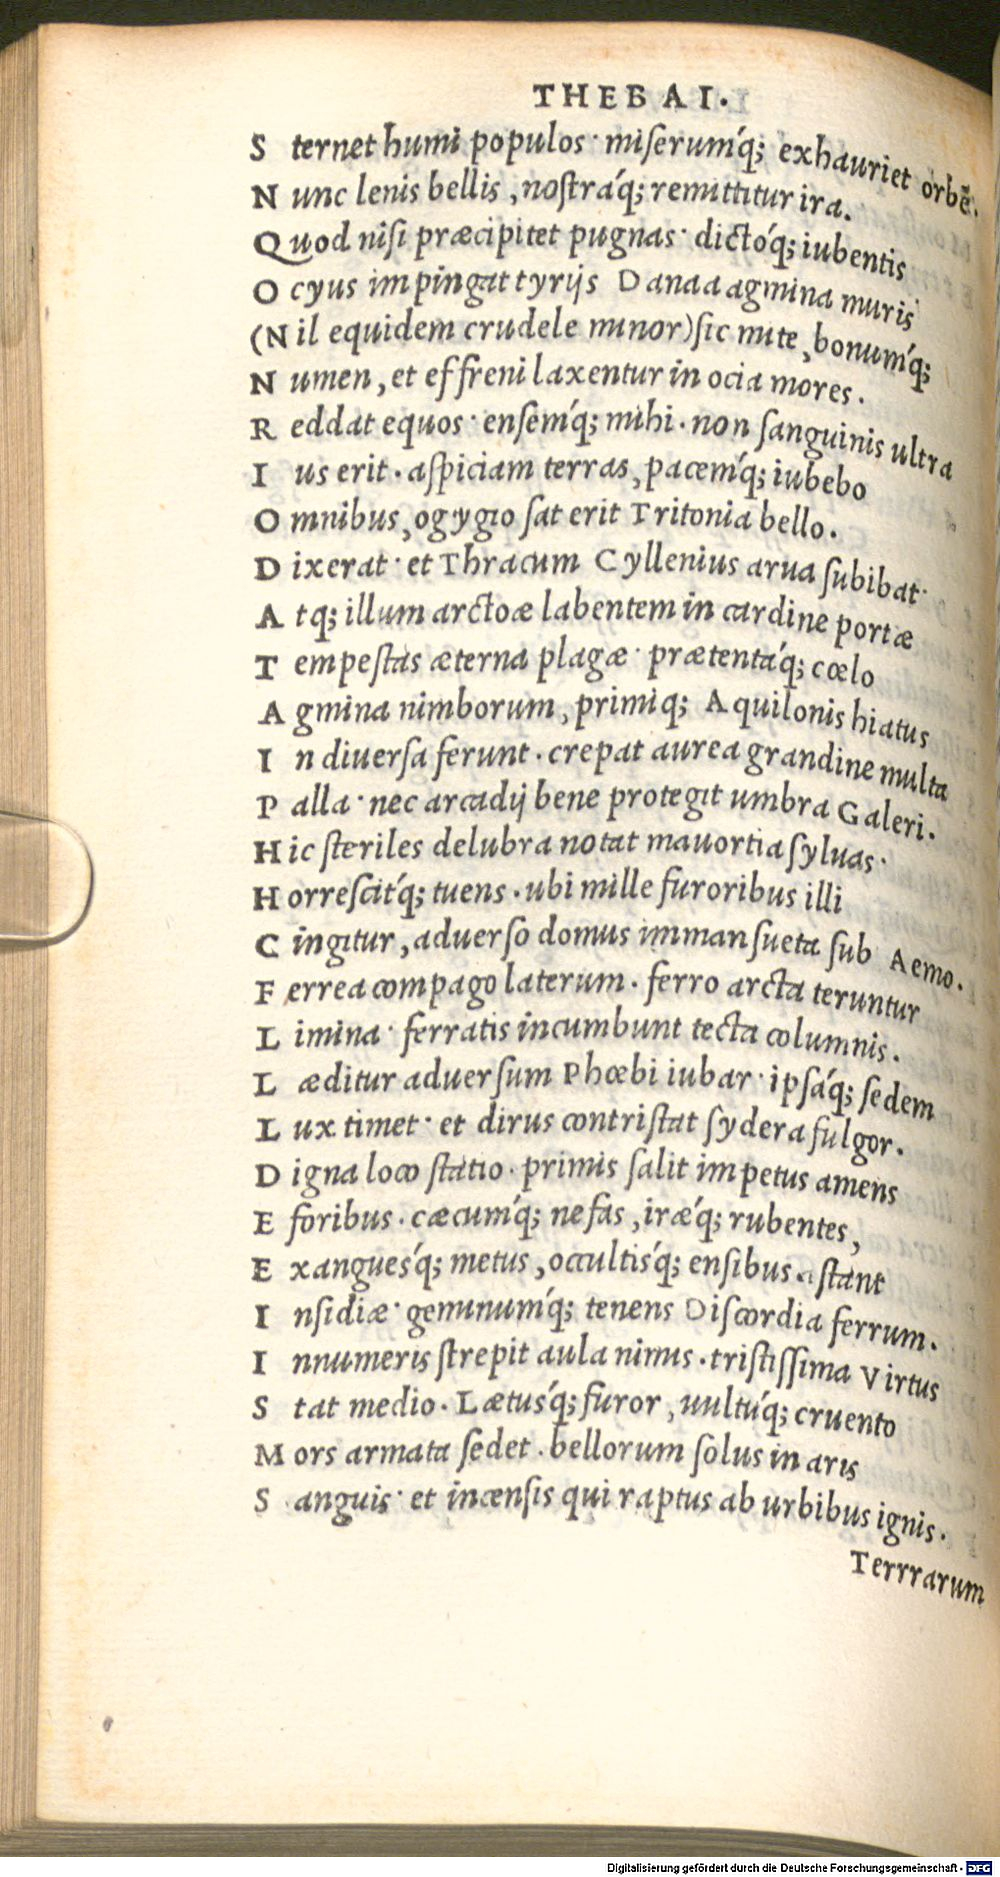 THEBAI.
S ternet humi populos· miserumq́; exhauriet orbē.
N unc lenis bellis, nostráq; remittitur ira.
Q uod nisi præcipitet pugnas· dictóq; iubentis
O cyus impingat tyrijs Danaa agmina muris
(N il equidem crudele minor) sic mite, bonumq́;
N umen, et effreni laxentur in ocia mores.
R eddat equos· ensemq́; mihi. non sanguinis ultra
I us erit. aspiciam terras, pacemq́; iubebo
O mnibus, ogygio sat erit Tritonia bello.
D ixerat· et Thracum Cyllenius arua subibat·
A tq; illum arctoæ labentem in cardine portæ
T empestas æterna plagæ· prætentáq; cœlo
A gmina nimborum, primiq; Aquilonis hiatus
I n diuersa ferunt. crepat aurea grandine multa
P alla· nec arcadij bene protegit umbra Galeri.
H ic steriles delubra notat mauortia syluas·
H orrescitq́; tuens. ubi mille furoribus illi
C ingitur, aduerso domus immansueta sub Aemo.
F errea compago laterum. ferro arcta teruntur
L imina· ferratis incumbunt tecta columnis.
L æditur aduersum Phœbi iubar· ipsáq; sedem
L ux timet· et dirus contristat sydera fulgor.
D igna loco statio. primis salit impetus amens
E foribus. cæcumq́; nefas, iræq́; rubentes,
E xanguesq́; metus, occultisq́; ensibus astant
I nsidiæ· geminumq́; tenens Discordia ferrum.
I nnumeris strepit aula nimis. tristissima Virtus
S tat medio. Lætusq́; furor, uultúq; cruento
M ors armata sedet. bellorum solus in aris
S anguis· et incensis qui raptus ab urbibus ignis.
Terrrarum
Digitalisierung gefördert durch die Deutsche Forschungsgemeinschaft - DFG